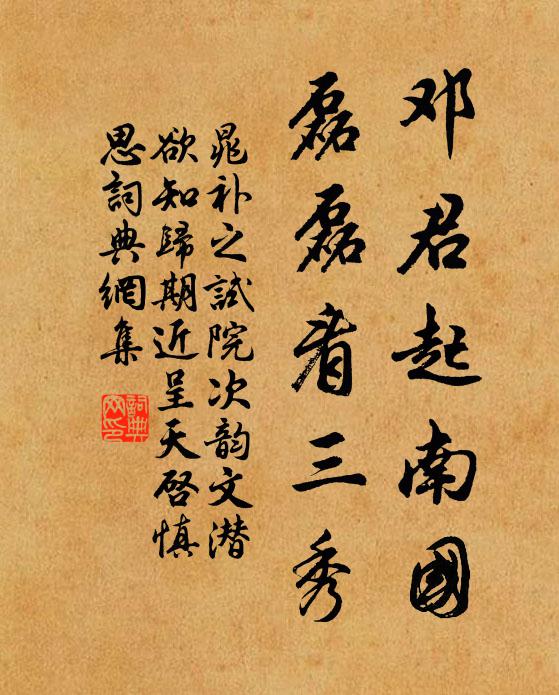 邓君起南國
磊磊看三秀
晁补之試院次韵文潜
欲知歸期近呈天启慎
思詞典網集
詞典
网印